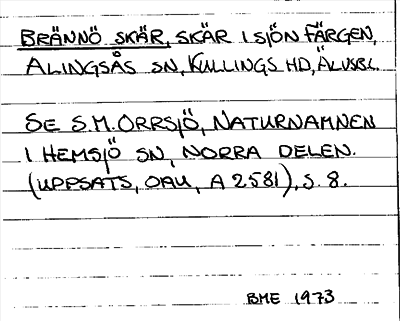 BRÄNNÖ SKÄR, SKÄR I SJÖN FÄRGEN,
ALINGSÅS SN, KULLINGS HD, ÄLVSBL.
SE S.M. ORRSJÖ, NATURNAMNEN
I HEMSJÖ SN, NORRA DELEN.
(UPPSATS, OAU, A 2581), S. 8.
BME 1973